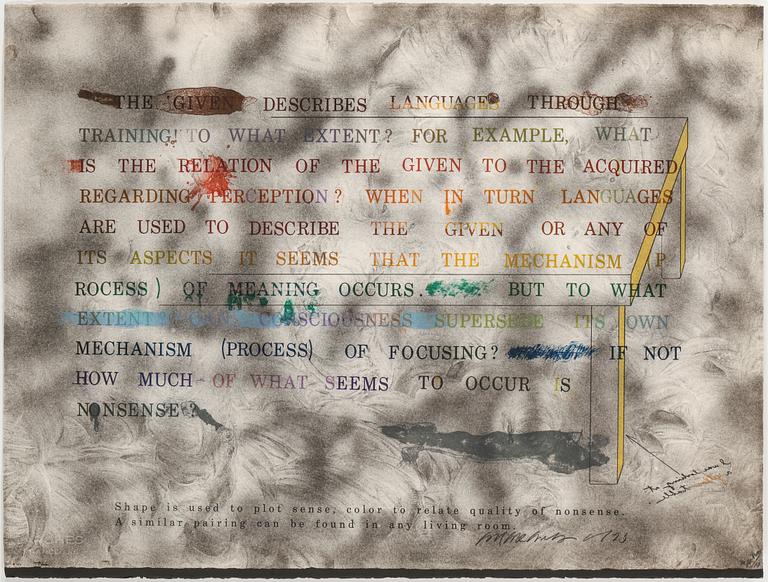 THE GIVEN DESCRIBES LANGUAGES THROUGH
TRAINING! TO WHAT EXTENT? FOR EXAMPLE, WHAT
IS THE RELATION OF THE GIVEN TO THE ACQUIRED
REGARDING PERCEPTION? WHEN IN TURN LANGUAGES
ARE USED TO DESCRIBE THE GIVEN OR ANY OF
ITS ASPECTS IT SEEMS THAT THE MECHANISM (P
ROCESS) OF MEANING OCCURS. BUT TO WHAT
EXTENT? CAN CONSCIOUSNESS SUPERSEDE ITS OWN
MECHANISM (PROCESS) OF FOCUSING? IF NOT
HOW MUCH OF WHAT SEEMS TO OCCUR IS
NONSENSE?
Shape is used to plot sense, color to relate quality of nonsense.
A similar pairing can be found in any living room.